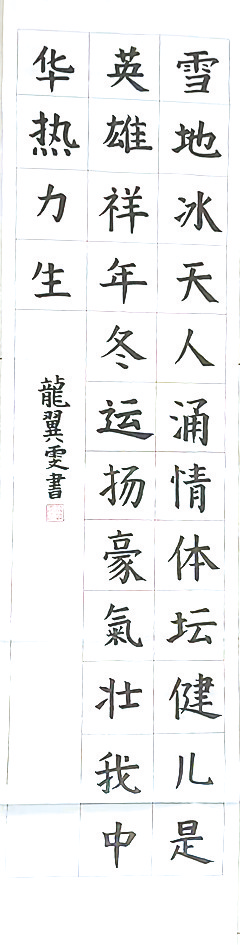 雪地冰天人涌情体坛健儿是
英雄祥年冬运扬豪氣壮我中
华热力生
龍翼雯書